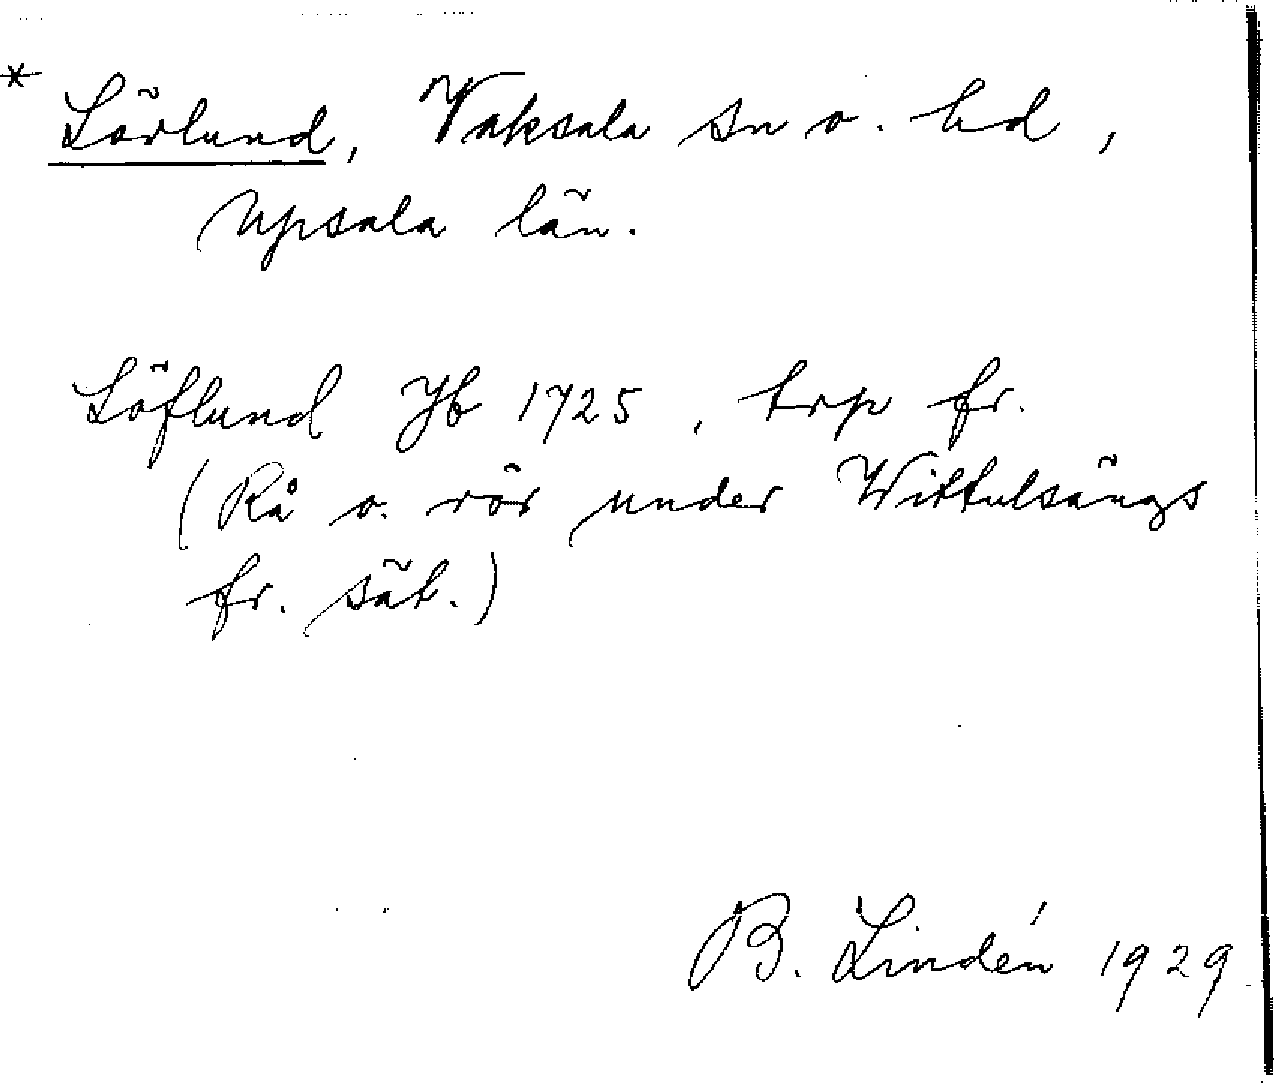 * Lövlund, Vaksala sn o. hd,
Upsala län.
Löflund Jb 1725, trp fr.
(Rå o. rör under Wittulsängs
fr. sät.)
B. Lindén 1929